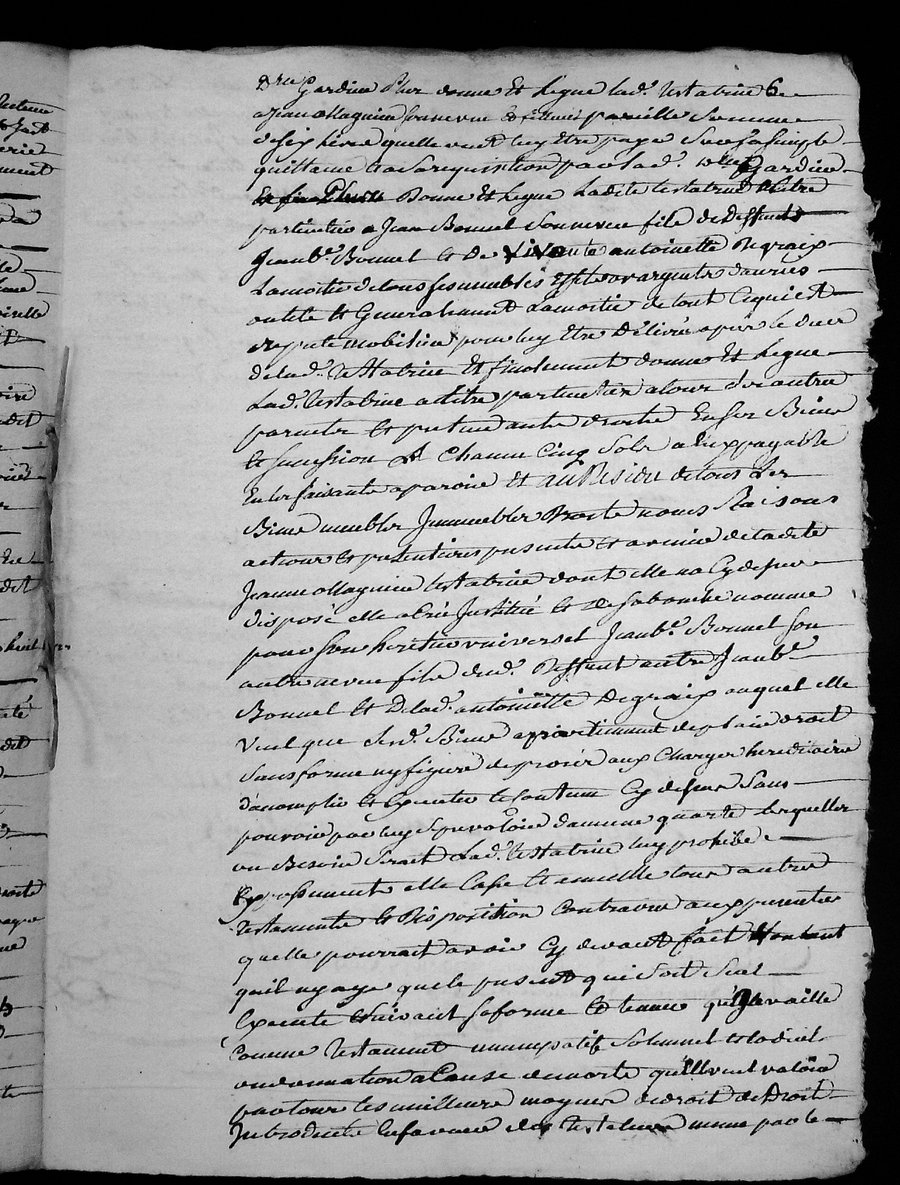 Dlle Gardien Plus donne Et Legue lad. testatrice
a Jean Magnien son neveu pareille Somme
de six livres quelle veut luy Etre payé Sur sa simple
quittance Et a sa requisition par lad. Dlle Gardien
Donne Et Legue Ladite testatrice a titre
particulier a Jean Bonnel Son neveu fils de deffunt
Jeanbt. Bonnel Et De vivante antoinette Degraix
La moitié de tous ses meubles Effets or argents danrées
outils Et Generalement La moitié de tout Ce qui Est
Reputé mobilier pour luy Etre Délivré après le deces
de lad. testatrice Et finalement donne Et Legue
Lad. testatrice a titre particulier a tous Ses autres
parents Et pretendants droits En ses Biens
Et succession A Chacun Cinq Sols a Eux payable
En les faisants aparoir Et au Residu de tous Ses
Biens meubles Immeubles Droits noms Raisons
actions Et pretentions presents Et a venir de ladite
Jeanne Magnien testatrice dont elle na Cy dessus
disposé elle a Créé Institué Et De sa bouche nommé
pour son heritier universel Jeanbt. Bonnel son
autre neveu fils dud. Deffunt autre Jeanbt.
Bonnel Et De lad. antoinette Degraix auquel elle
veut que Sesd. Biens apartiennent de plain droit
sans forme ny figure de procès aux Charges hereditaires
d'acomplir Et Executer le Contenu Cy dessus Sans
pouvoir par luy aucune quarte lesquelles
ou Besoin Serait Lad. testatrice luy prohibe
Expressement elle Casse Et annulle tous autres
testaments Et Disposition Contraire aux presentes
quelle pourrait avoir Cy devant fait
quil ny aye que le present qui soit Seul
Executé Suivant sa forme Et teneur qu'il vaille
Comme testament nuncupatif Solennel Codicil
ou donnation a Cause de mort Et qu'elle veut valoir
par tous les meilleurs moyens de droit
Introduits En faveur des testateurs même par le